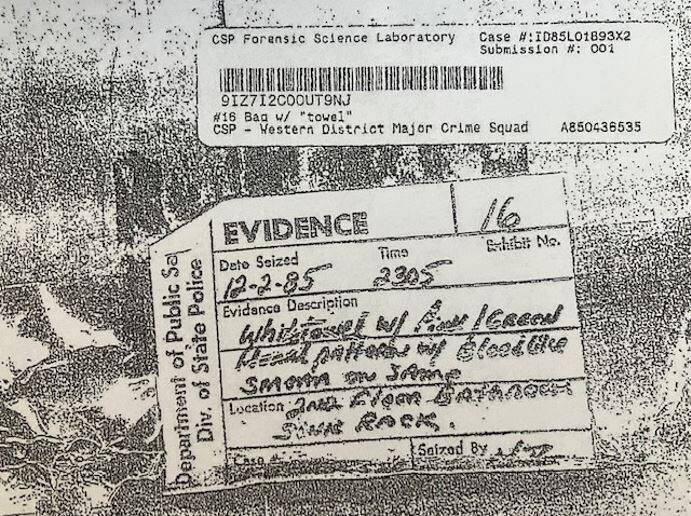 CSP Forensic Science Laboratory Case #:ID85L01893X2
Submission #: 001
9IZ7I2COOUT9NJ
#16 Bag w/ "towel"
CSP - Western District Major Crime Squad A850436535
Department of Public Sa
Div. of State Police
EVIDENCE 16
Exhibit No.
Date Seized Time
12-2-85 2305
Evidence Description
White towel w/ Pink/Green
Floral pattern w/ Bloodlike
Smear on same
Location 2nd Floor Bathroom
Sink Rack.
Case # Seized By